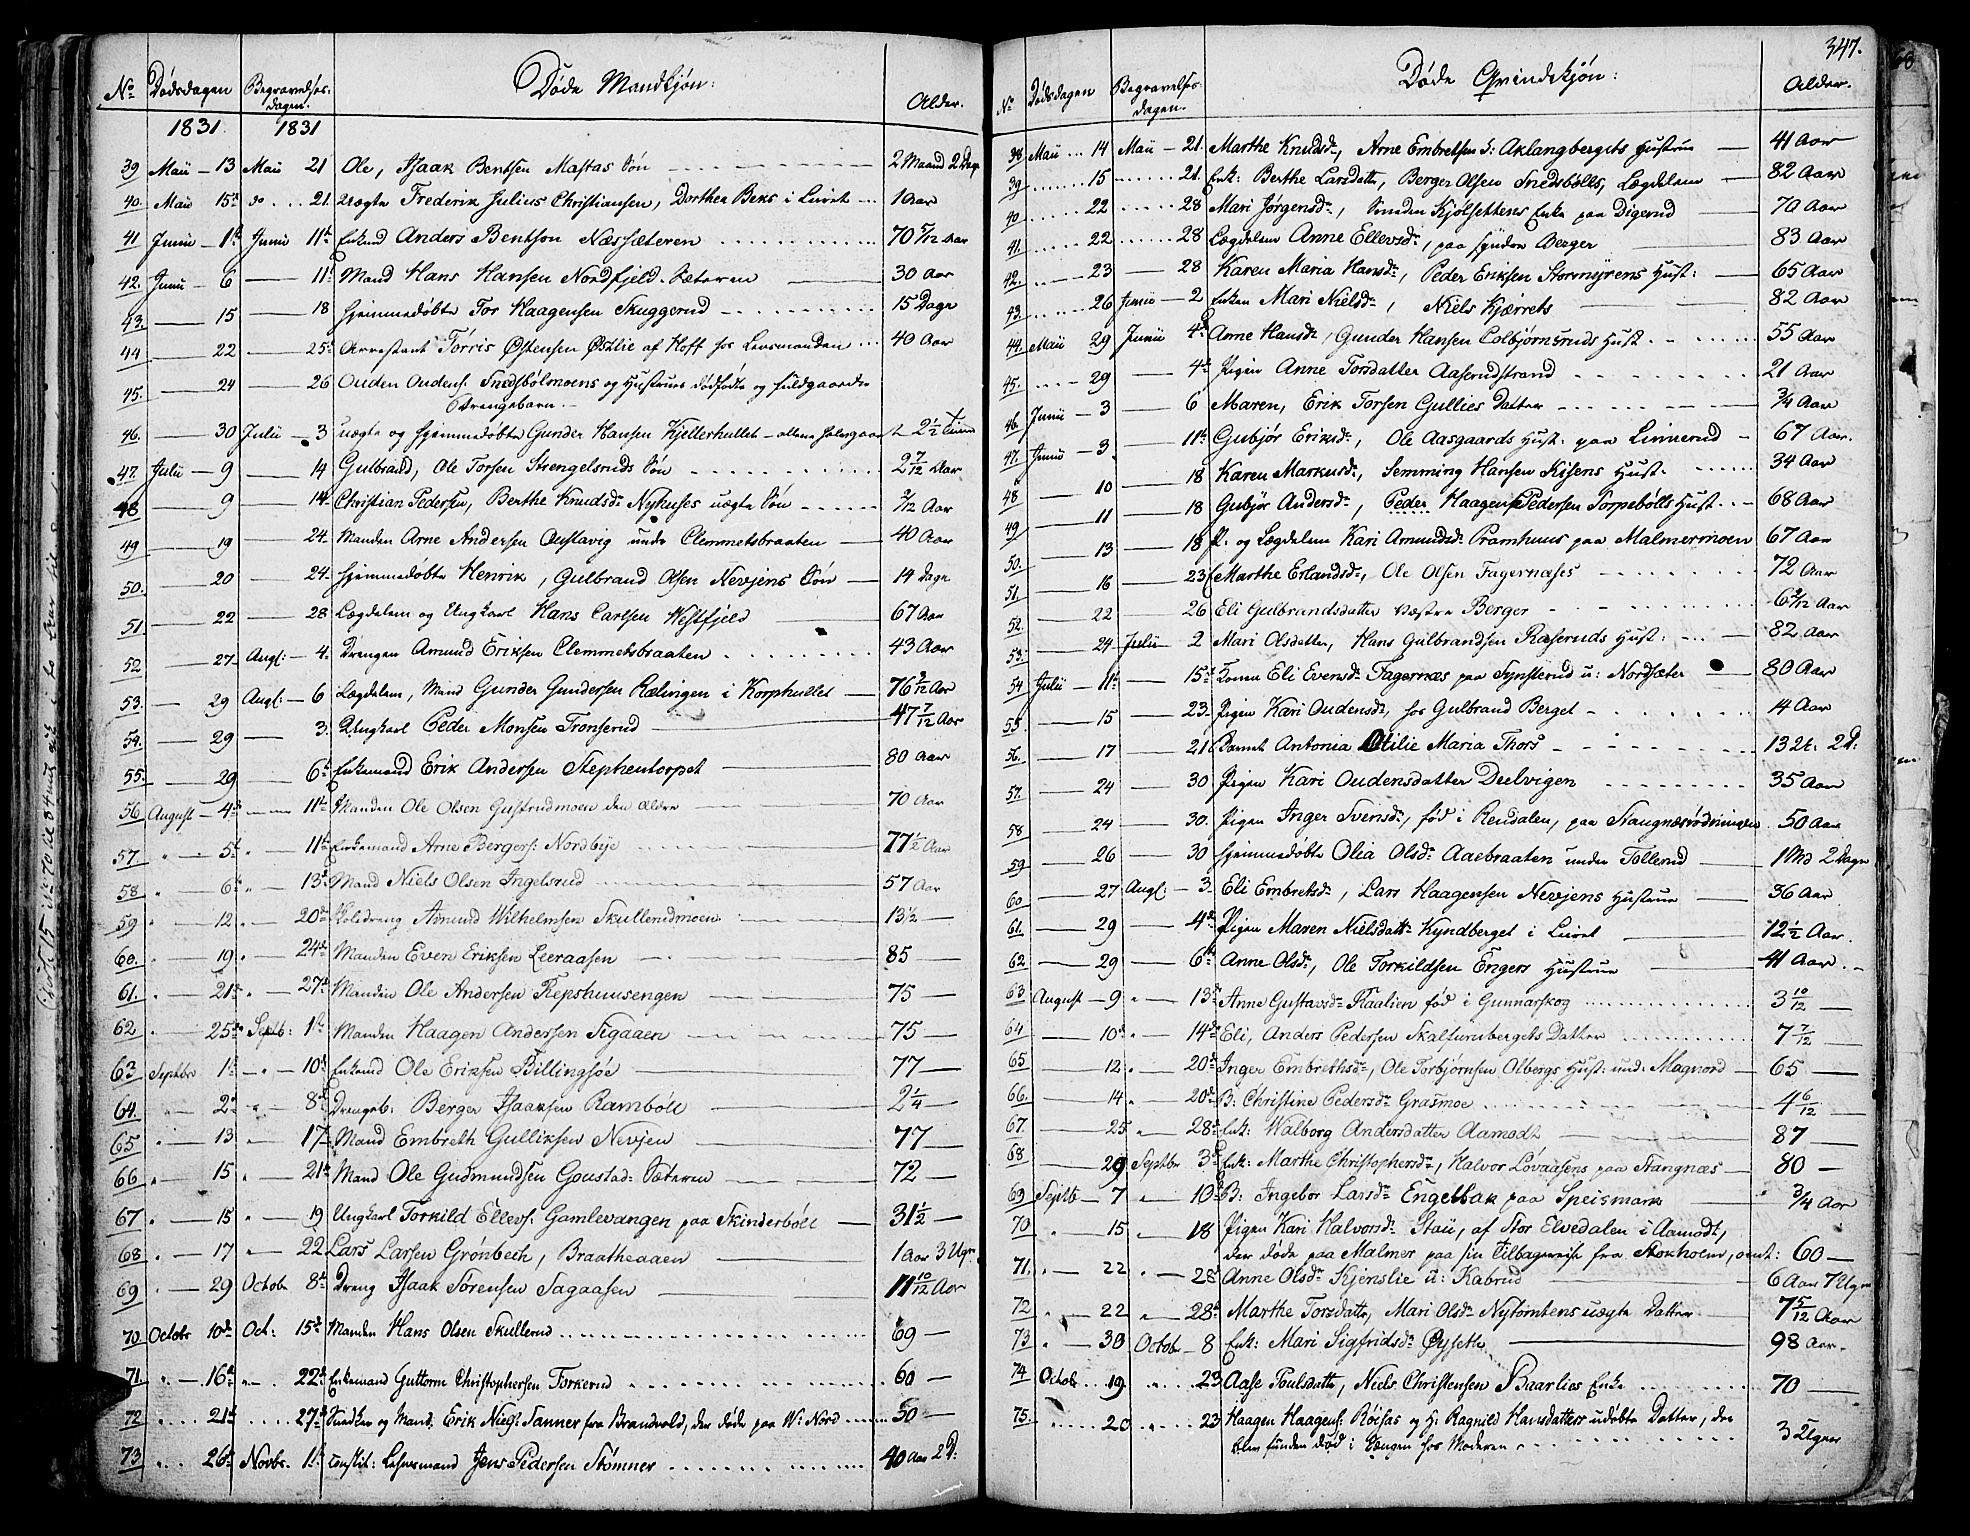 No Dødsdagen Begravelses dagen. Døde Mandkjøn: Alder.
1831. 1831
39 Maii — 13 Maii 21 Ole, Isaak Bentsen Mastas Søn 2 Maand 2 Dage
40. Maii 15de do 21. uægte Frederik Julius Christiansen, Dorthea Beks i Luret 1 Aar
41 Junii — 1te Junii 11te Enkmd Anders Bentson Næssæteren 70 5/12 Aar
42. Junii — 6 — 11te Mand Hans Hansen Nordfjeld-Sæteren 30 Aar
43. — 15 — 18 hjemmedøbte Tor Haagensen Skuggerud 15 Dage
44 — 22 — 25de Arrestant Torris Østensen Østlie af Hoff hos Lensmanden 40 Aar
45. — 24 — 26 Ouden Oudens: Snedsbølmoens og Hustrues dødfødte og fuldgaarde
Drengebarn.
46. — 30 Julii — 3 uægte og hjemmedøbte Gunder Hansen Kjellerhullet 2 1/2 Time
47. Julii — 9 — 14 Gulbrand, Ole Torsen Strengelsruds Søn 2 7/12 Aar
48 — 9 — 14. Christian Pedersen, Berthe Knudsdr Nyhuses uægte Søn 2/12 Aar
49 — 19 — 24. Manden Arne Andersen Oustavig under Clemmetsbraaten 40 Aar
50. — 20 — 24. hjemmedøbte Henrik, Gulbrand Olsen Nevjens Søn 14 Dage
51. — 22 — 28 Lægdslem og Ungkarl Hans Carlsen Westfjeld 67 Aar
52. — 27 Augl: — 4. Drengen Amund Eriksen Clemmetsbraaten 43 Aar
53. — 29 Augl: — 6 Lægdslem, Mand Gunder Gundersen Rælingen i Korphullet 76 2/12 Aar
54. — 29 — 3. Ungkarl Peder Monsen Tronserud 47 7/12 Aar
55. — 29 — 6te Enkemand Erik Andersen Stephentorpet 80 Aar
56 August — 4de — 11te Manden Ole Olsen Gustrudmoen den ældre 70 Aar
57. " — 5te — 11te Enkemand Arne Bergers: Nordbye 77 1/2 Aar
58 " — 6te " — 13de Mand Niels Olsen Ingelsrud 57 Aar
59 " — 12 " — 20de Amund Wilhelmsen Skullerudmoen 13 1/2 —
60. " — 19 " — 24de Manden Even Eriksen Leeraasen 85 —
61. " — 21de " — 27de Manden Ole Andersen Repshuusengen 75 —
62 " — 25de Septb: 1te Manden Haagen Andersen Sigaaen 75 —
63 Septbr 1te — " — 10de Enkemd Ole Eriksen Billingsøe 77 —
64. " — 2den " — 8de Drengeb: Berger Isaaksen Rambøll 2 1/4 —
65 " — 13 " — 17 Mand Embreth Gulliksen Nevjen 77 —
66 " — 15 " — 21de Mand Ole Gudmundsen Goustad-Sæteren 72 —
67 " — 15 " — 19 Ungkarl Torkild Ellevs: Gamlevangen paa Skinderbøll 31 1/2 —
68 " — 17 " — 22 Lars Larsen Grønbech, Braatheaaen 1 Aar 3 Uger
69 " — 29 Octob 8de Dreng Isaak Sørensen Sagaasen 11 10/12 Aar
70 Octobr 10de Oct: 15de Manden Hans Olsen Skullerud 69 —
71. " — 16de " — 22de Enkemand Guttorm Christophersen Torkerud 60 —
72 " 21de 27de Snedker og Mand: Erik Niels: Tanner fra Brandvold, der døde paa W: Nord 50 —
73 26de Novbr. 1te constit: Lehnsmand Jens Pedersen Stømner 40 Aar 2 D:
347.
No Dødsdagen Begravelses dagen. Døde Qvindekjøn: Alder.
38 Maii 14 Maii — 21. Marthe Knudsdr, Arne Embretsen S: Aklangbergets Hustrue 41 Aar
39 15 21. Enk: Berthe Larsdatter, Berger Olsen Snedsbølls, Lægdslem 82 Aar
40 22 28 Mari Jørgensdr, Smeden Kjølsettens Enke paa Digerud 70 Aar
41. 22 28 Lægdslem Anne Ellevsdr, paa søndre Berger 83 Aar
42. 23 — 28 Karen Maria Hansdr, Peder Eriksen Stormyrens Hust: 65 Aar
43. 26 Junii — 2 Enken Mari Nielsdr, Niels Kjærrets 82 Aar
44. Maii 29 Junii 4de Anne Hansdr, Gunder Hansen Colbjørnsruds Hust. 55 Aar
45. 29 — 4de Pigen Anne Torsdatter Aaserudstrand 21 Aar
46. Junii — 3 — 6 Maren, Erik Torsen Gullies Datter 3/4 Aar
47. Junii — 3. — 11te Gubjør Eriksdr, Ole Aasgaards Hust: paa Linnerud 67 Aar.
48 — 10 — 18 Karen Markusdr, Semming Hansen Kisens Hust. 34 Aar
49 — 11 — 18 Gubjør Andersdr, Peder Haagens Pedersen Torpebølls Hust. 68 Aar
50. — 13 — 18 P: og Lægdslem Kari Amundsdr Pramhuus paa Malmermoen 67 Aar
51. — 16 — 23 Marthe Erlandsdr, Ole Olsen Fagernæses 72 Aar
52. — 22 — 26 Eli Gulbrandsdatter Næstre Berger 6 2/12 Aar
53. — 24 Julii — 2 Mari Olsdatter, Hans Gulbrandsen Raseruds Hust: 82 Aar
54 Julii — 11te — 15de Konen Eli Evensdr Fagernæs paa Synsterud u: Nordsæter 80 Aar
55. — 15 — 23. Pigen Kari Oudensdr, hos Gulbrand Berget 14 Aar
56. — 17 — 21 Barnet Antonia Otilie Maria Thors 13 U: 2 D:
57. — 24 — 30 Pigen Kari Oudensdatter Deelvigen 35 Aar
58 — 24 — 30. Pigen Inger Svensdr, fød i Rendalen, paa Stangnæsrødningen 50 Aar
59 — 26 — 30 hjemmedøbte Olia Olsdr Aaebraaten under Tollerud 1 Md 2 Dage
60 — 27 Augl: — 3. Eli Embretsdr, Lars Haagensen Nevjens Hustrue 36 Aar
61. — 29 — 4de Pigen Maren Nielsdattr Kyndberget i Luret 12 1/2 Aar.
62 — 29 — 6te Anne Olsdr, Ole Torkildsen Engers Hustrue 41 Aar.
63 August — 9 " — 13de Anne Gustavsdr Raalien fød i Gunnarskog 3 10/12
64 — 10de " — 14de Eli, Anders Pedersen Skalfurubergets Datter 7 7/12
65 12 " — 20de Inger Embrethsdr, Ole Torbjørnsen Olbergs Hust: und: Magnord 65 —
66. — 14 " — 20de B: Christine Pedersdr Grasmoe 4 6/12
67. — 25 " — 28de Enk: Walborg Andersdatter Aamodt 87 —
68 — 29 Septbr 3de Enk: Marthe Christophersdr, Halvor Lövaasens paa Stangnæs 80 —
69 Septb — 7 " — 10de B: Ingebor Larsdr Engelbak paa Speismark 3/4 Aar
70 " — 15 " — 18 Pigen Kari Halvorsdr Staii, af Stor Elvedalen i Aamodt,
der døde paa Malmer paa sin Tilbagereise fra Stokholm, omt: 60 —
71. " — 22 " — 28 Anne Olsdr Kjenslie u: Kabrud 6 Aar 7 Uger
72 " — 22 " — 28de Marthe Torsdattr, Mari Olsdr Nytomtens uægte Datter 7 5/12 Aar
73 " — 30 Octob — 8 Enk: Mari Sigfridsdr Øysseth 98 Aar.
74 Octob 19 " 23 Aase Poulsdattr, Niels Christensen Baarlies Enke 70 —
75. 20 " 23 Haagen Haagens: Röisas og H: Ragnild Hansdatters udøbte Datter, der
blev funden død i Sengen hos Moderen 3 Uger